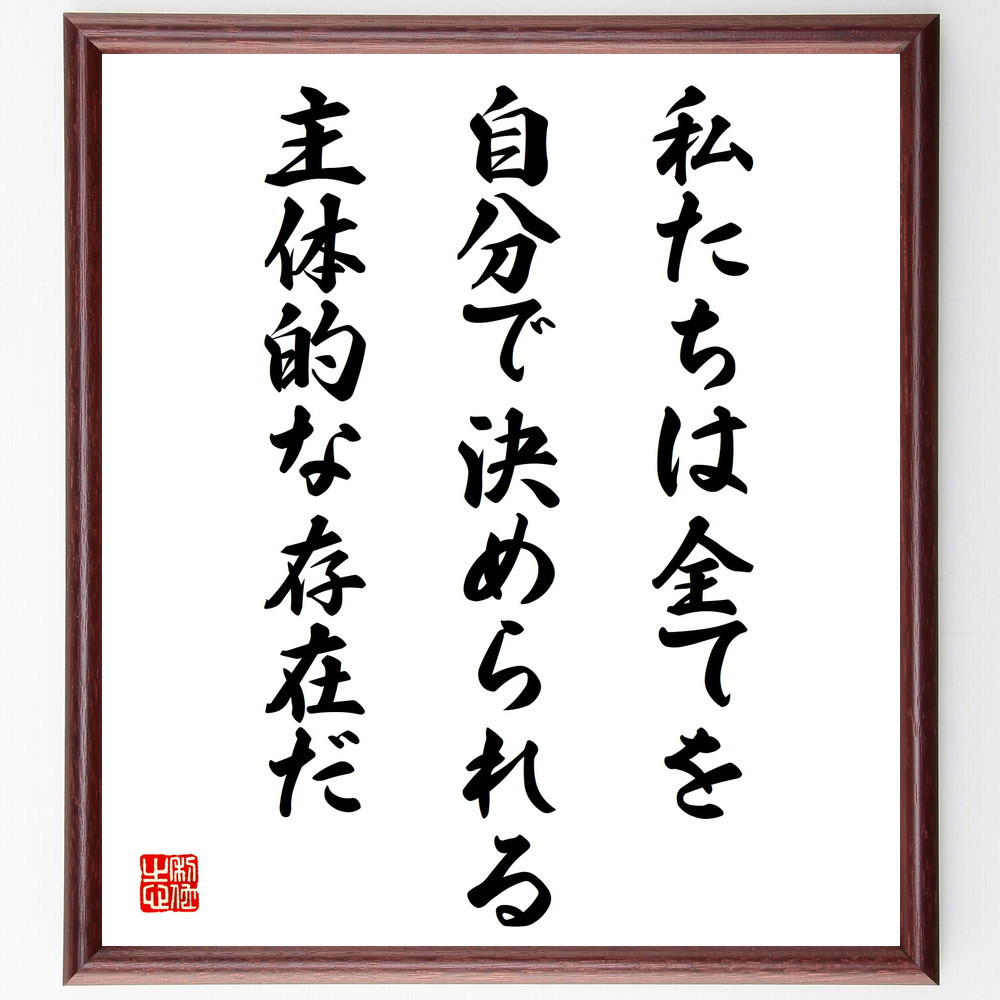 私たちは全てを
自分で決められる
主体的な存在だ